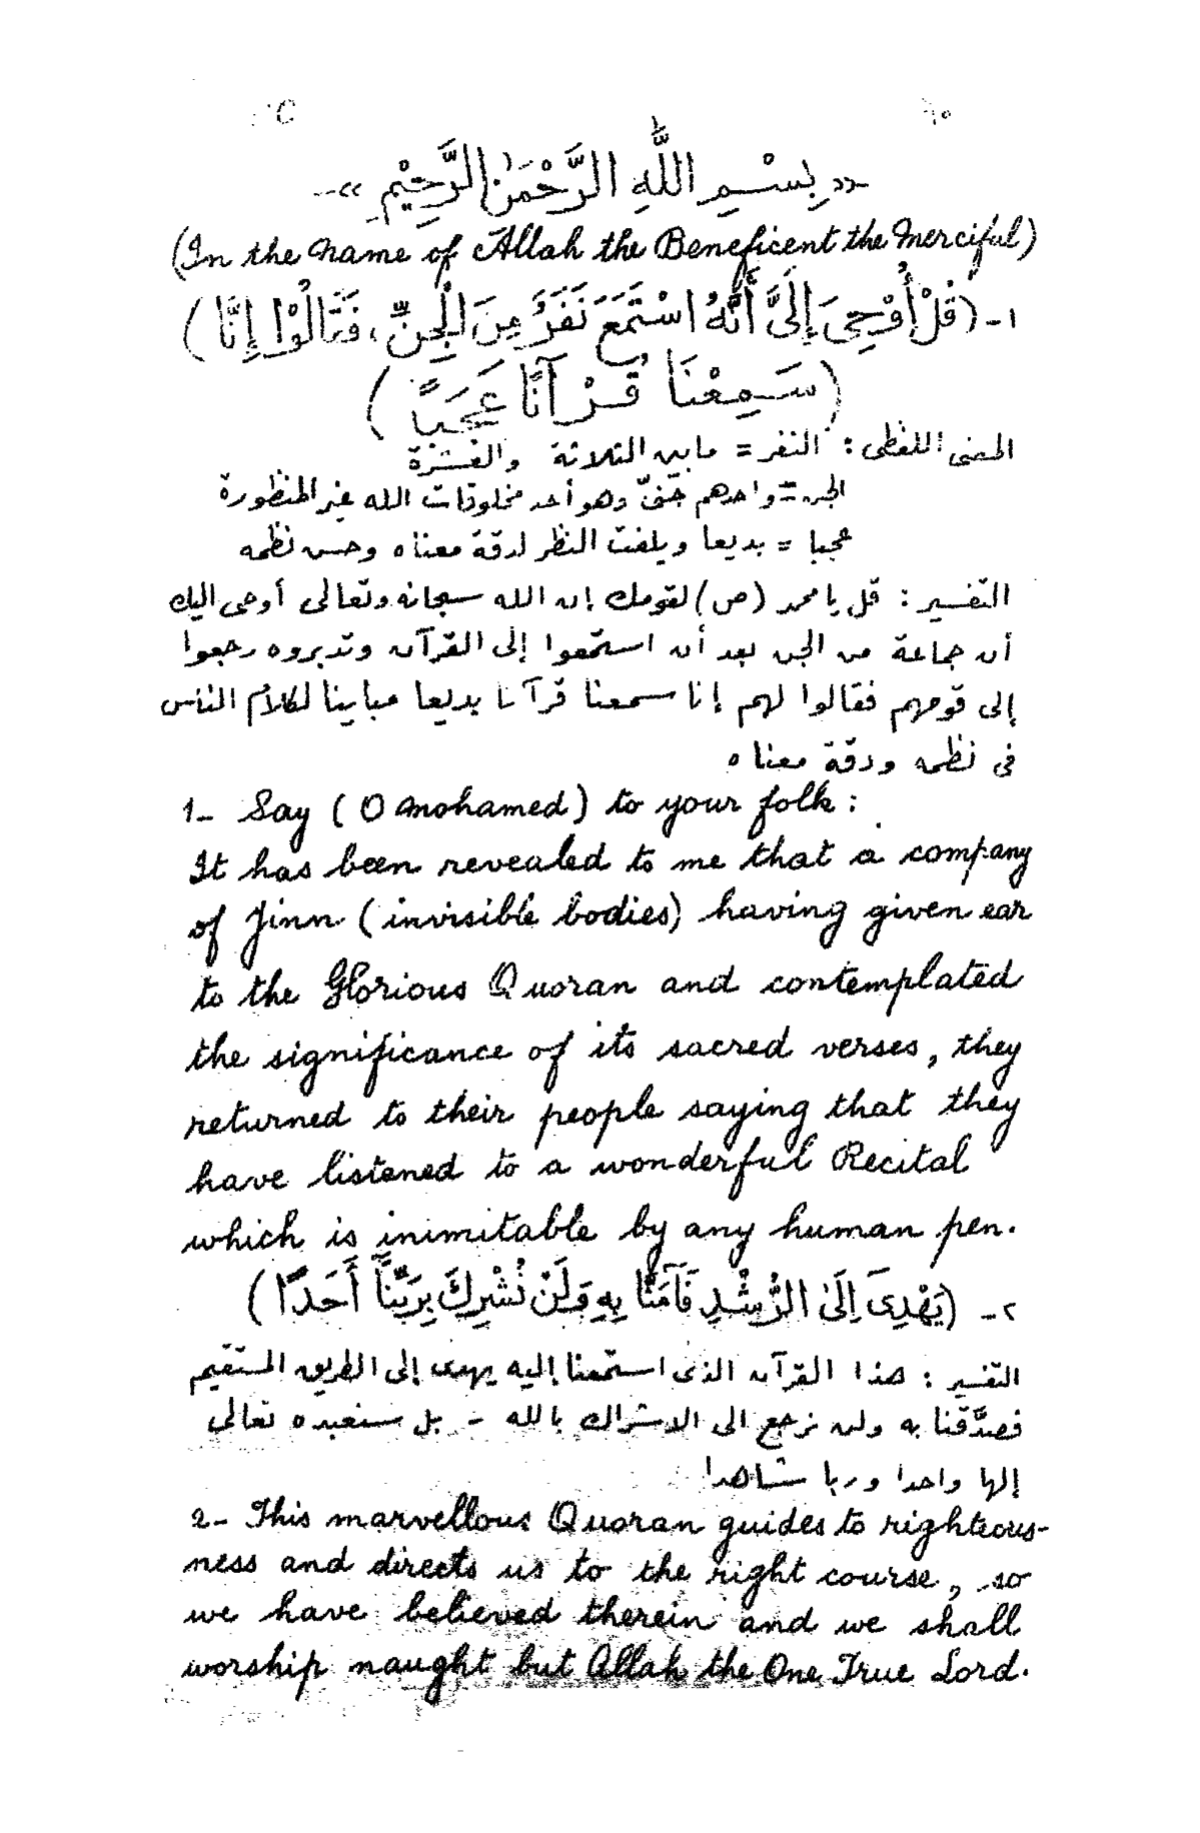 «بِسْمِ اللَّهِ الرَّحْمَٰنِ الرَّحِيْمِ»
(In the name of Allah the Beneficent the Merciful)
١- (قُلْ أُوْحِىَ إِلَىَّ أَنَّهُ اسْتَمَعَ نَفَرٌ مِنَ الْجِنِّ، فَقَالُوْا إِنَّا)
(سَمِعْنَا قُرْآنًا عَجَبًا)
المعنى اللفظى : النفر = ما بين الثلاثة والعشرة
الجن = واحدهم جنىّ وهو أحد مخلوقات الله غير المنظورة
عجبا = بديعا ويلفت النظر لدقة معناه وحسن نظمه
التفسير : قل يا محمد (ص) لقومك إن الله سبحانه وتعالى أوحى اليك
أن جماعة من الجن بعد أن استمعوا إلى القرآن وتدبروه رجعوا
إلى قومهم فقالوا لهم إنا سمعنا قرآنا بديعا مباينا لكلام الناس
فى نظمه ودقة معناه
1- Say (O Mohamed) to your folk :
It has been revealed to me that a company
of Jinn (invisible bodies) having given ear
to the Glorious Quoran and contemplated
the significance of its sacred verses, they
returned to their people saying that they
have listened to a wonderful Recital
which is inimitable by any human pen.
٢- (يَهْدِىَ إِلَىٰ الرُّشْدِ فَآمَنَّا بِهِ وَلَنْ نُشْرِكَ بِرَبِّنَا أَحَدًا)
التفسير : هذا القرآن الذى استمعنا إليه يهدى إلى الطريق المستقيم
فصدَّقنا به ولن نرجع الى الاشراك بالله - بل سنعبده تعالى
إلها واحدا وربا شاهدا
2- This marvellous Quoran guides to righteous-
ness and directs us to the right course, so
we have believed therein and we shall
worship naught but Allah the One True Lord.